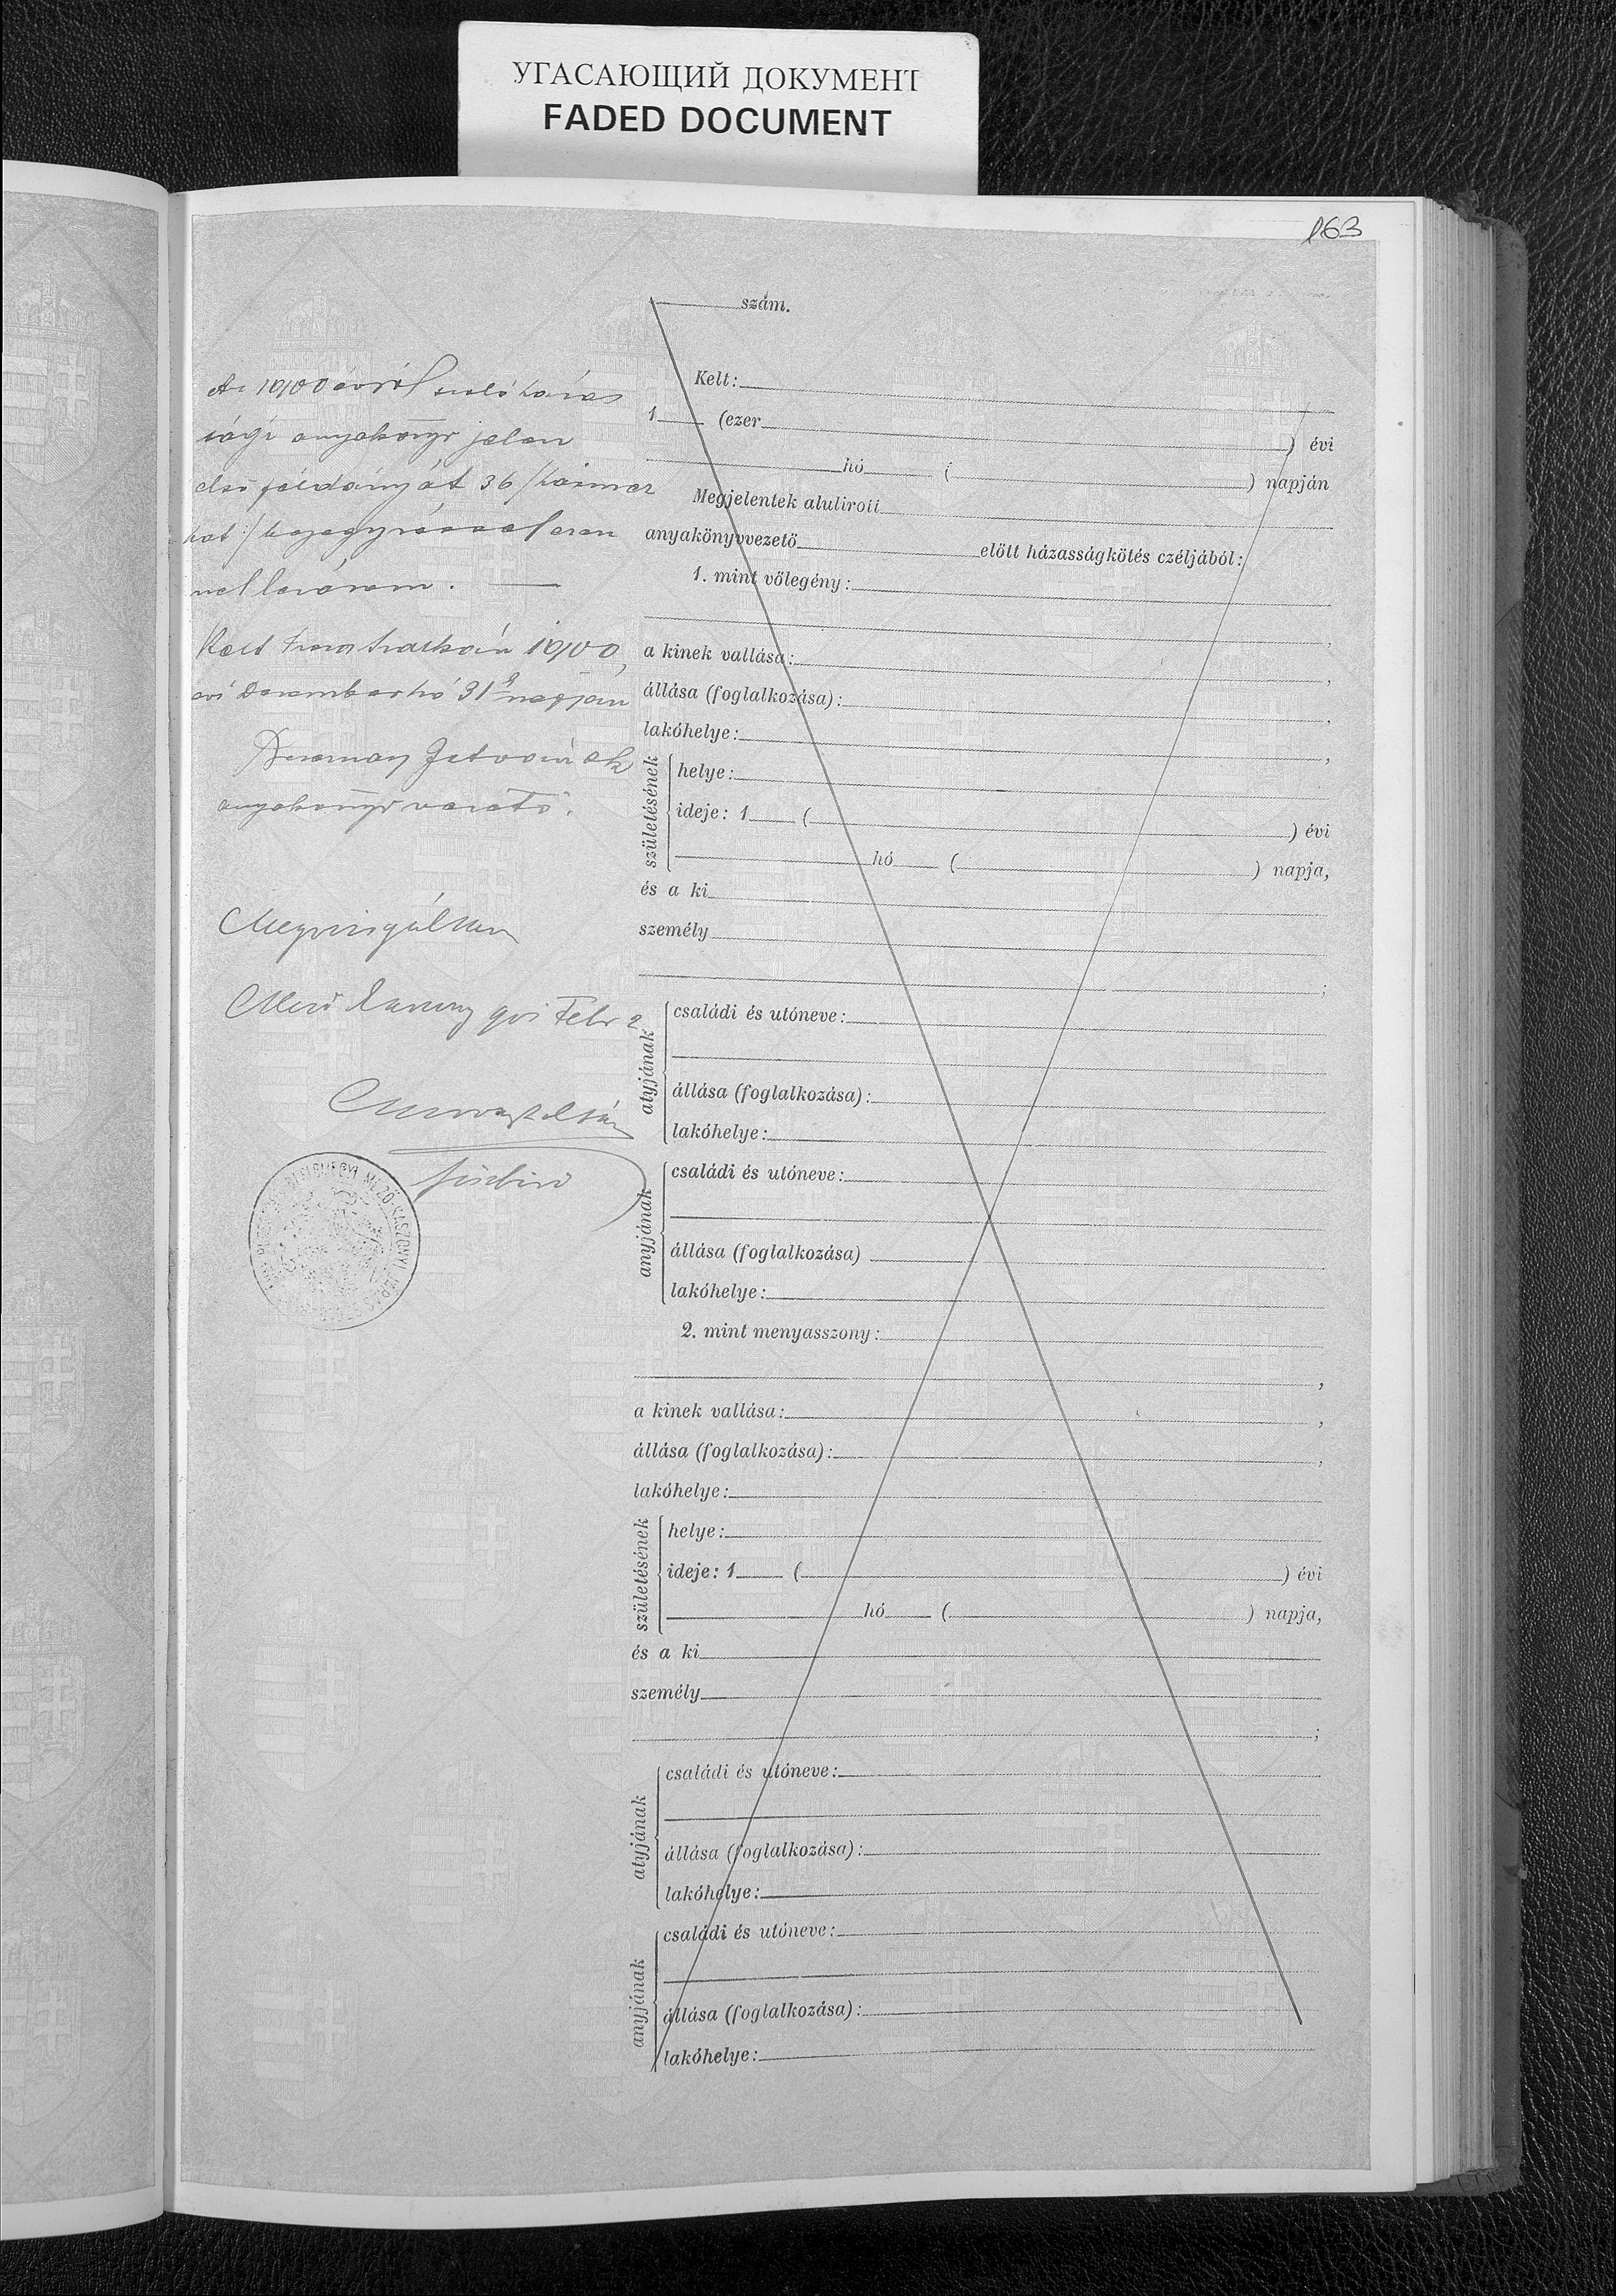 УГАСАЮЩИЙ ДОКУМЕНТ
FADED DOCUMENT
163
szám.
Az 1900 évről szóló házas
sági anyakönyv jelen
első példányát 36 /harmincz
hat:/ bejegyzéssel ezen
nel lezárom.
Kelt 1900
évi Deczember hó 31 napján
István sk
anyakönyvvezető.
Megvizsgáltam
Mező Kaszony Febr 2
főbíró
MEZŐ-KASZONYI
Kelt:
1 (ezer ) évi
hó ( ) napján
Megjelentek alulirott
anyakönyvvezető előtt házasságkötés czéljából:
1. mint vőlegény:
,
a kinek vallása: ,
állása (foglalkozása): ,
lakóhelye: ,
születésének
helye:
ideje: 1 ( ) évi
hó ( ) napja,
és a ki
személy
;
atyjának
családi és utóneve:
állása (foglalkozása):
lakóhelye:
anyjának
családi és utóneve:
állása (foglalkozása)
lakóhelye:
2. mint menyasszony:
,
a kinek vallása: ,
állása (foglalkozása): ,
lakóhelye:
születésének
helye:
ideje: 1 ( ) évi
hó ( ) napja,
és a ki
személy
;
atyjának
családi és utóneve:
állása (foglalkozása):
lakóhelye:
anyjának
családi és utóneve:
állása (foglalkozása):
lakóhelye: